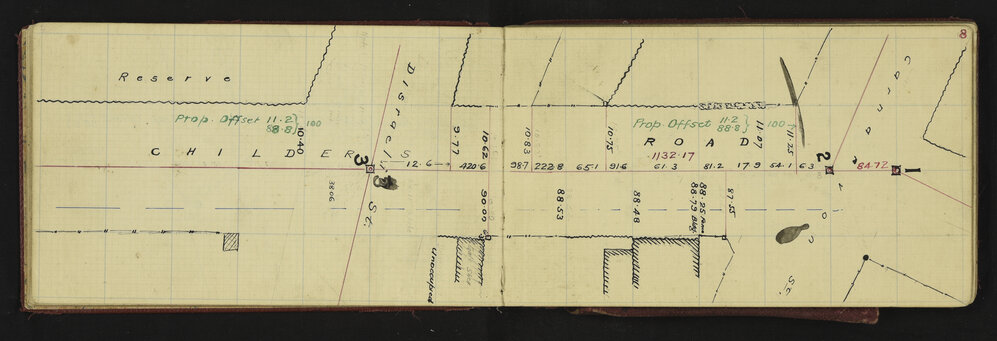 8
Reserve
Disraeli St.
Prop. Offset 11.2 } 100
88.8
10.40
9.77
10.62
10.83
10.75
Prop. Offset 11.2 } 100
88.8
11.07
11.25
CHILDERS ROAD
1132.17
3
12.6
420.6
98.7
222.8
65.1
91.6
61.3
81.2
17.9
54.1
6.3
2
84.72
1
38.06
90.00
88.53
88.48
88.25 Fence
88.79 Bldg.
87.55
Unoccupied
St.